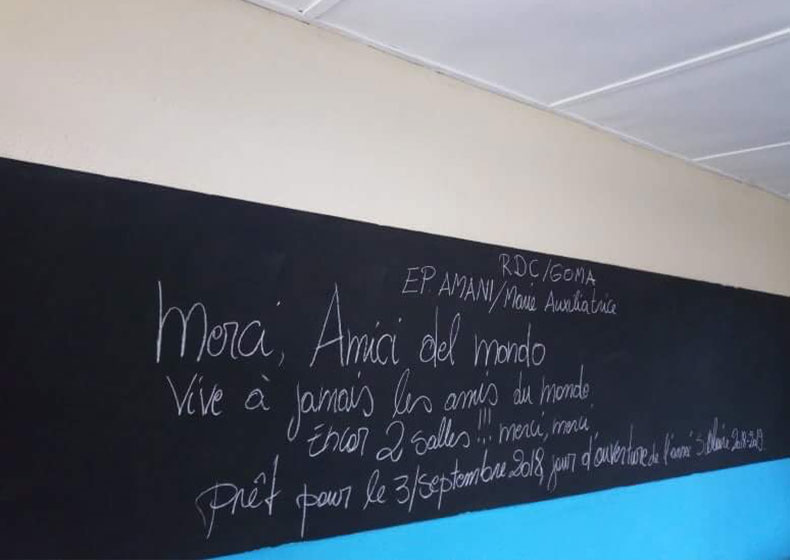 RDC/GOMA
EP AMANI/Marie Auxiliatrice
Merci, Amici del mondo
Vive à jamais les amis du monde
Encor 2 salles !!! merci, merci
prêt pour le 3/septembre 2018, jour d'ouverture de l'anné Scolaire 2018-2019